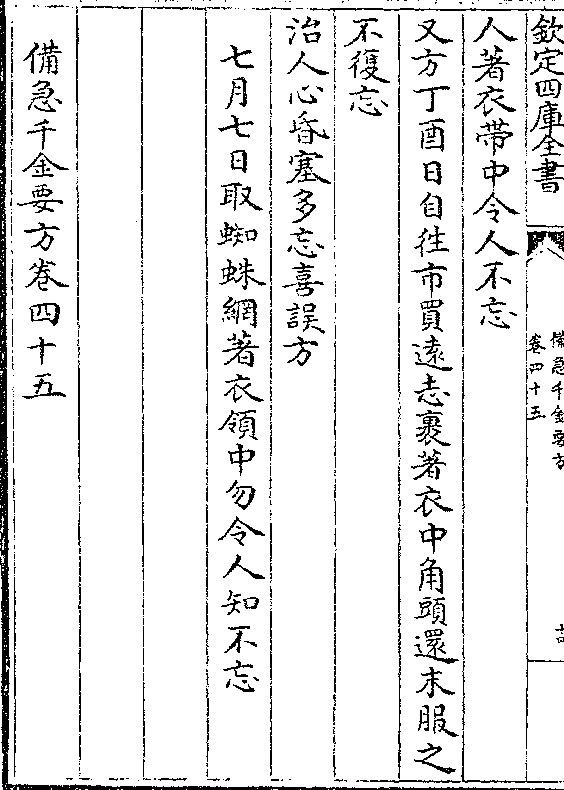 欽定四庫全書
備急千金要方
卷四十五
人著衣帶中令人不忘
又方丁酉日自往市買遠志裹著衣中角頭還末服之
不復忘
治人心昏塞多忘喜誤方
七月七日取蜘蛛網著衣領中勿令人知不忘
備急千金要方卷四十五